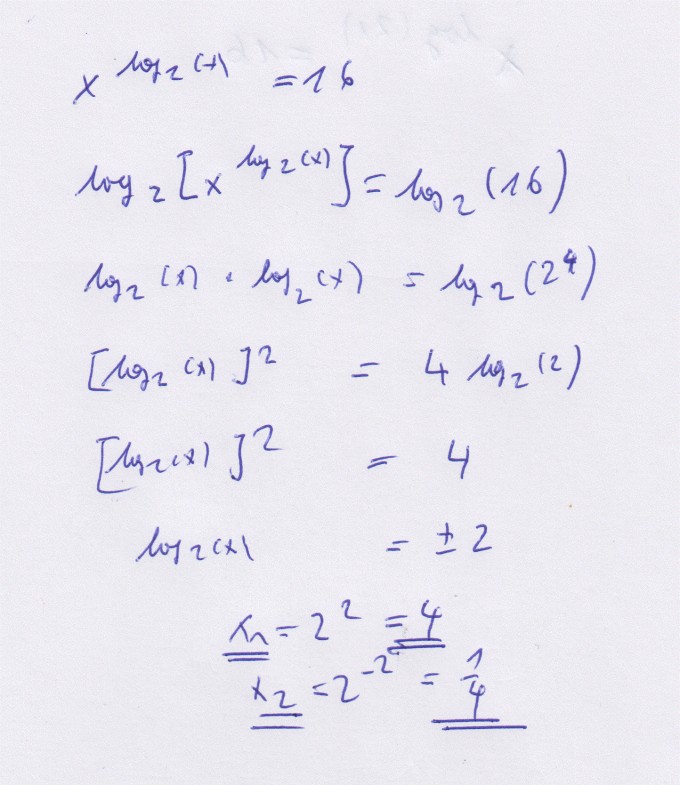 x^log₂(x) = 16
log₂[x^log₂(x)] = log₂(16)
log₂(x) · log₂(x) = log₂(2⁴)
[log₂(x)]² = 4 log₂(2)
[log₂(x)]² = 4
log₂(x) = ± 2
x₁ = 2² = 4
x₂ = 2⁻² = 1/4